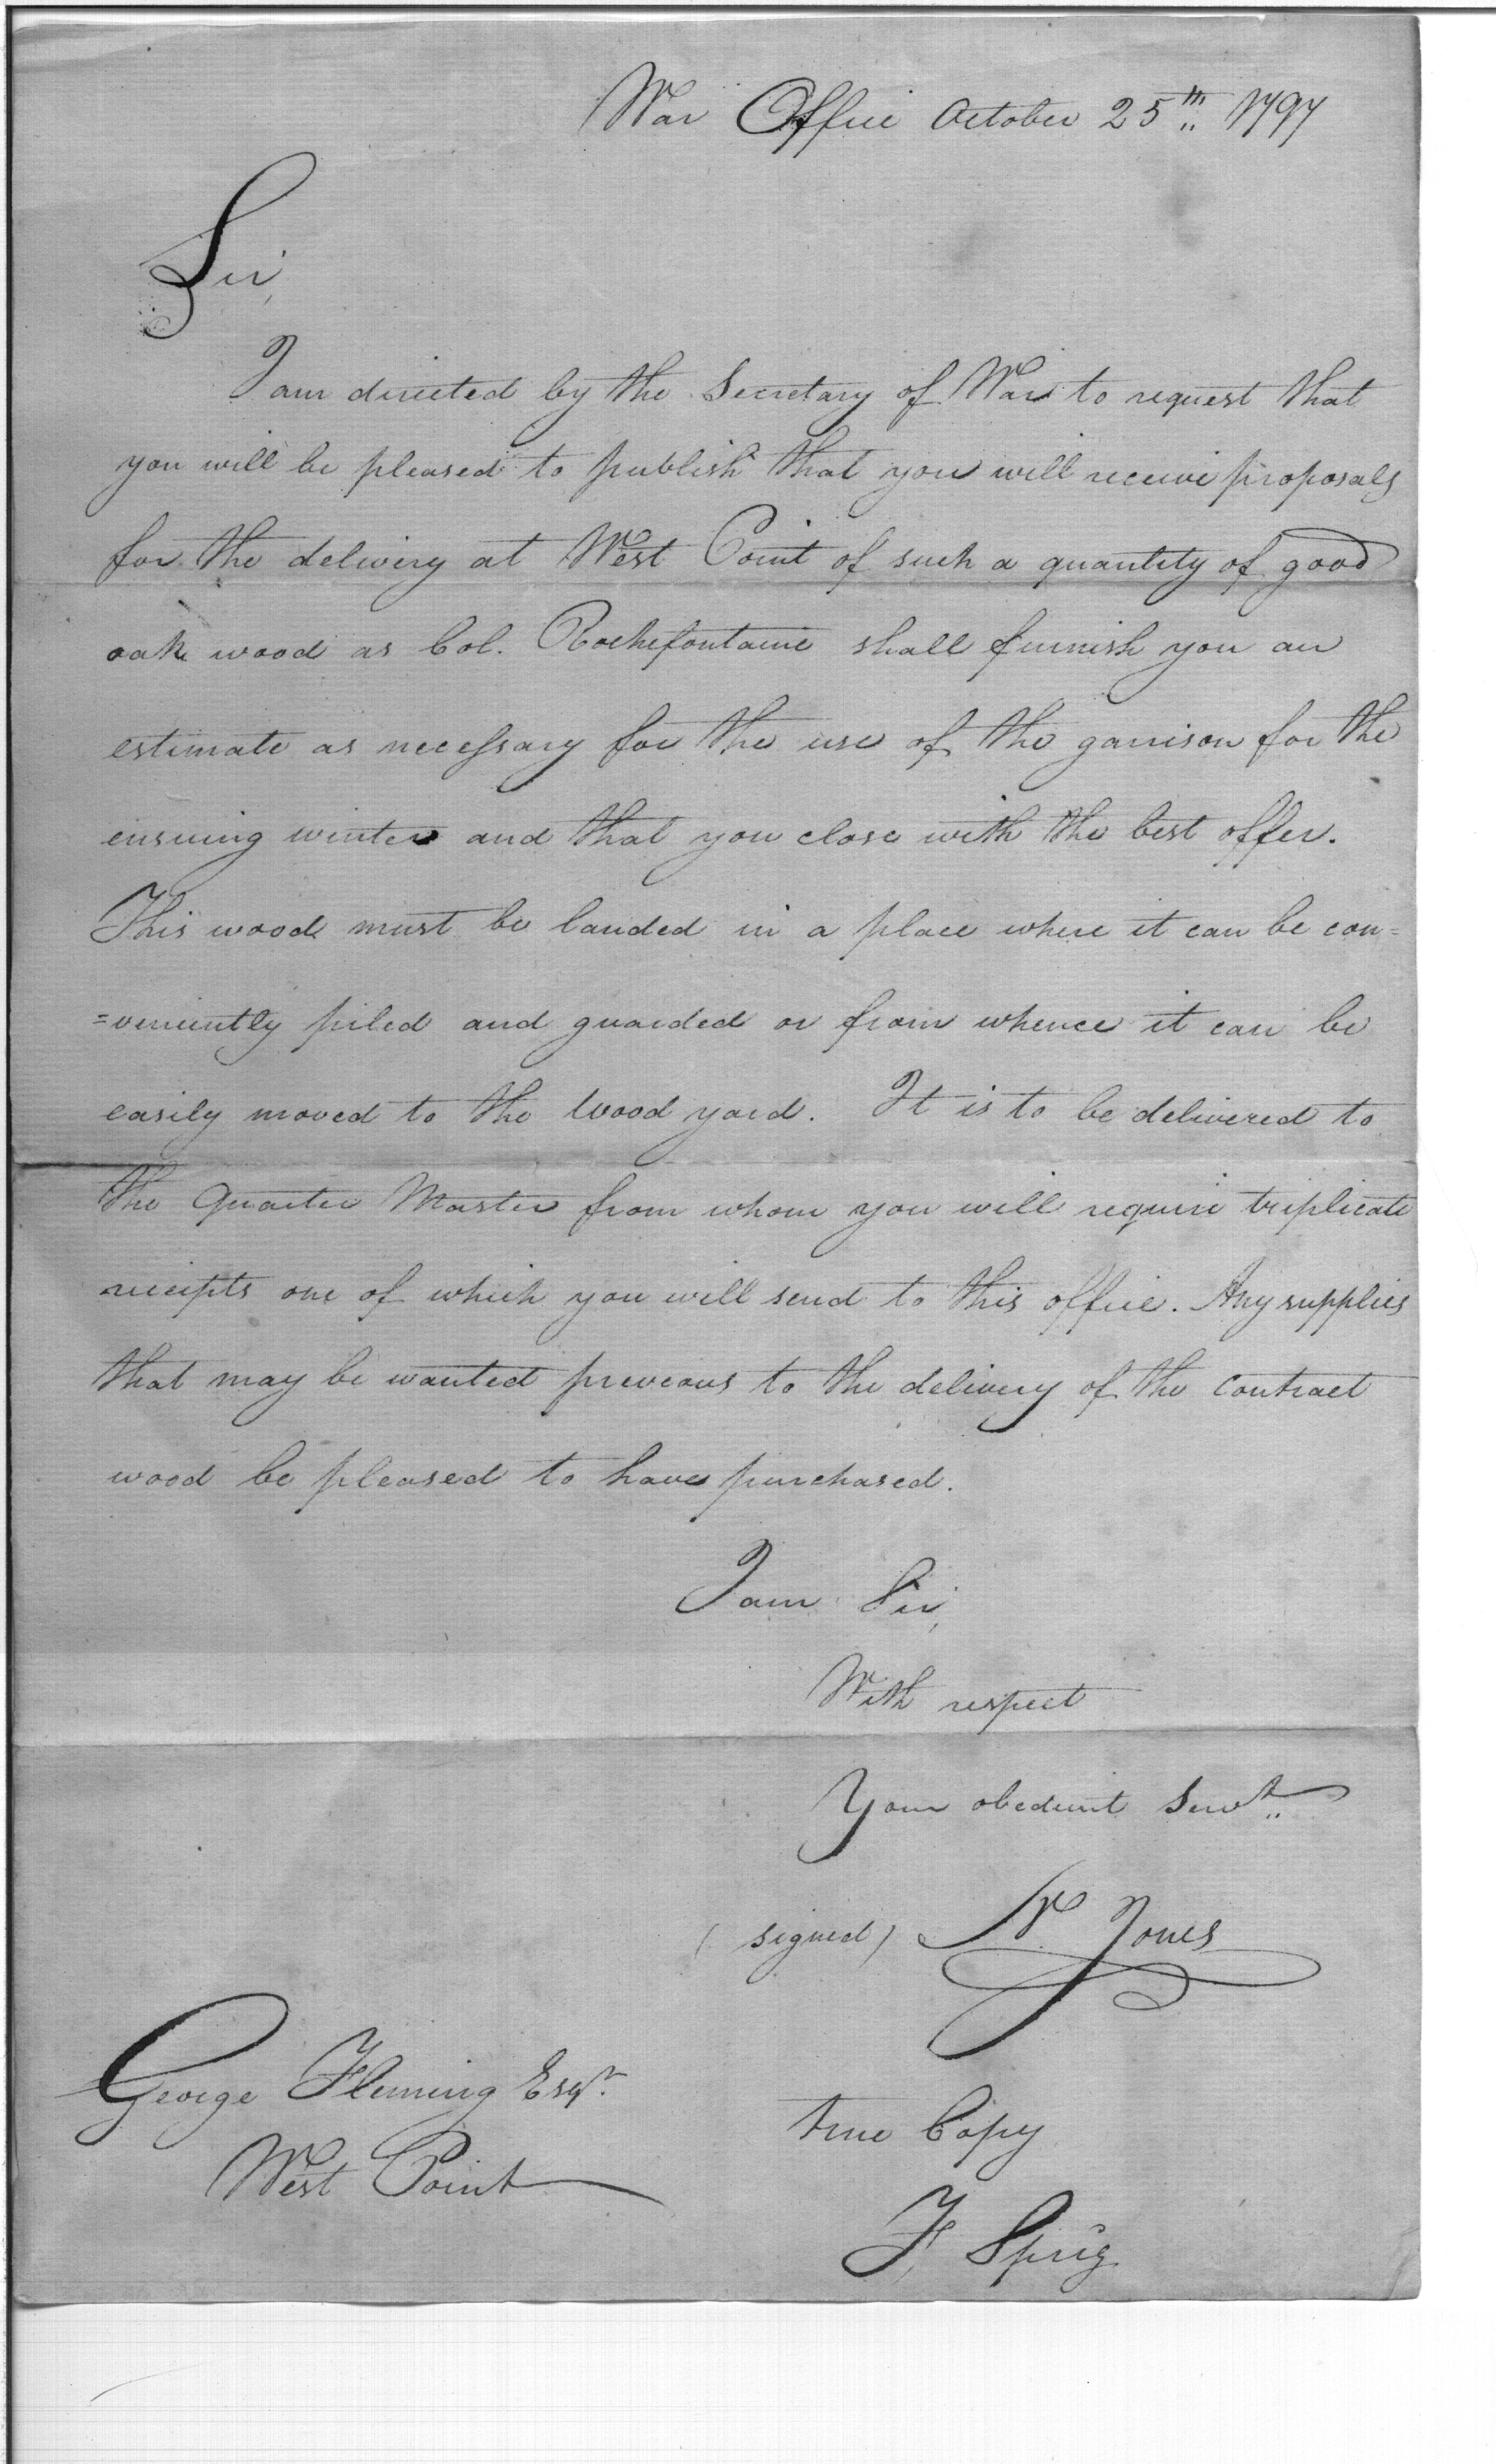 War Office October 25th 1797
Sir,
I am directed by the Secretary of War to request that
you will be pleased to publish that you will receive proposals
for the delivery at West Point of such a quantity of good
oak wood as Col. Rochefontaine shall furnish you an
estimate as necessary for the use of the garrison for the
ensuing winter and that you close with the best offer.
This wood must be landed in a place where it can be con=
=veniently piled and guarded or from whence it can be
easily moved to the Wood yard. It is to be delivered to
the Quarter Master from whom you will require triplicate
receipts one of which you will send to this office. Any supplies
that may be wanted preveous to the delivery of the contract
wood be pleased to have purchased.
I am Sir,
With respect
Your obedient Servt
(signed) N. Jones
George Fleming Esqr.
West Point
true Copy
F, Sprig